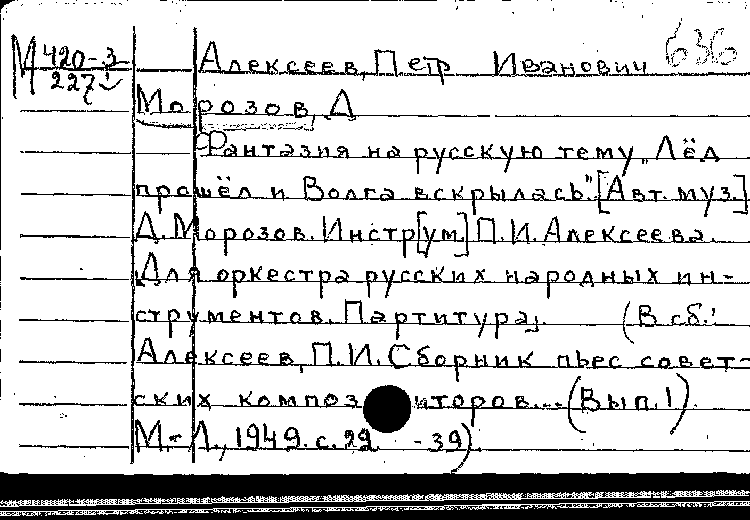 М 420-3 Алексеев, Петр Иванович 636
227
Морозов, Д
Фантазия на русскую тему „Лёд
прошёл и Волга вскрылась". [Авт. муз.]
Д. Морозов. Инстр[ум.] П.И. Алексеева.
Для оркестра русских народных ин-
струментов. Партитура. (В сб.:
Алексеев, П.И. Сборник пьес совет-
ских композиторов... (Вып. 1)
М.-Л., 1949. с. 29 -39).